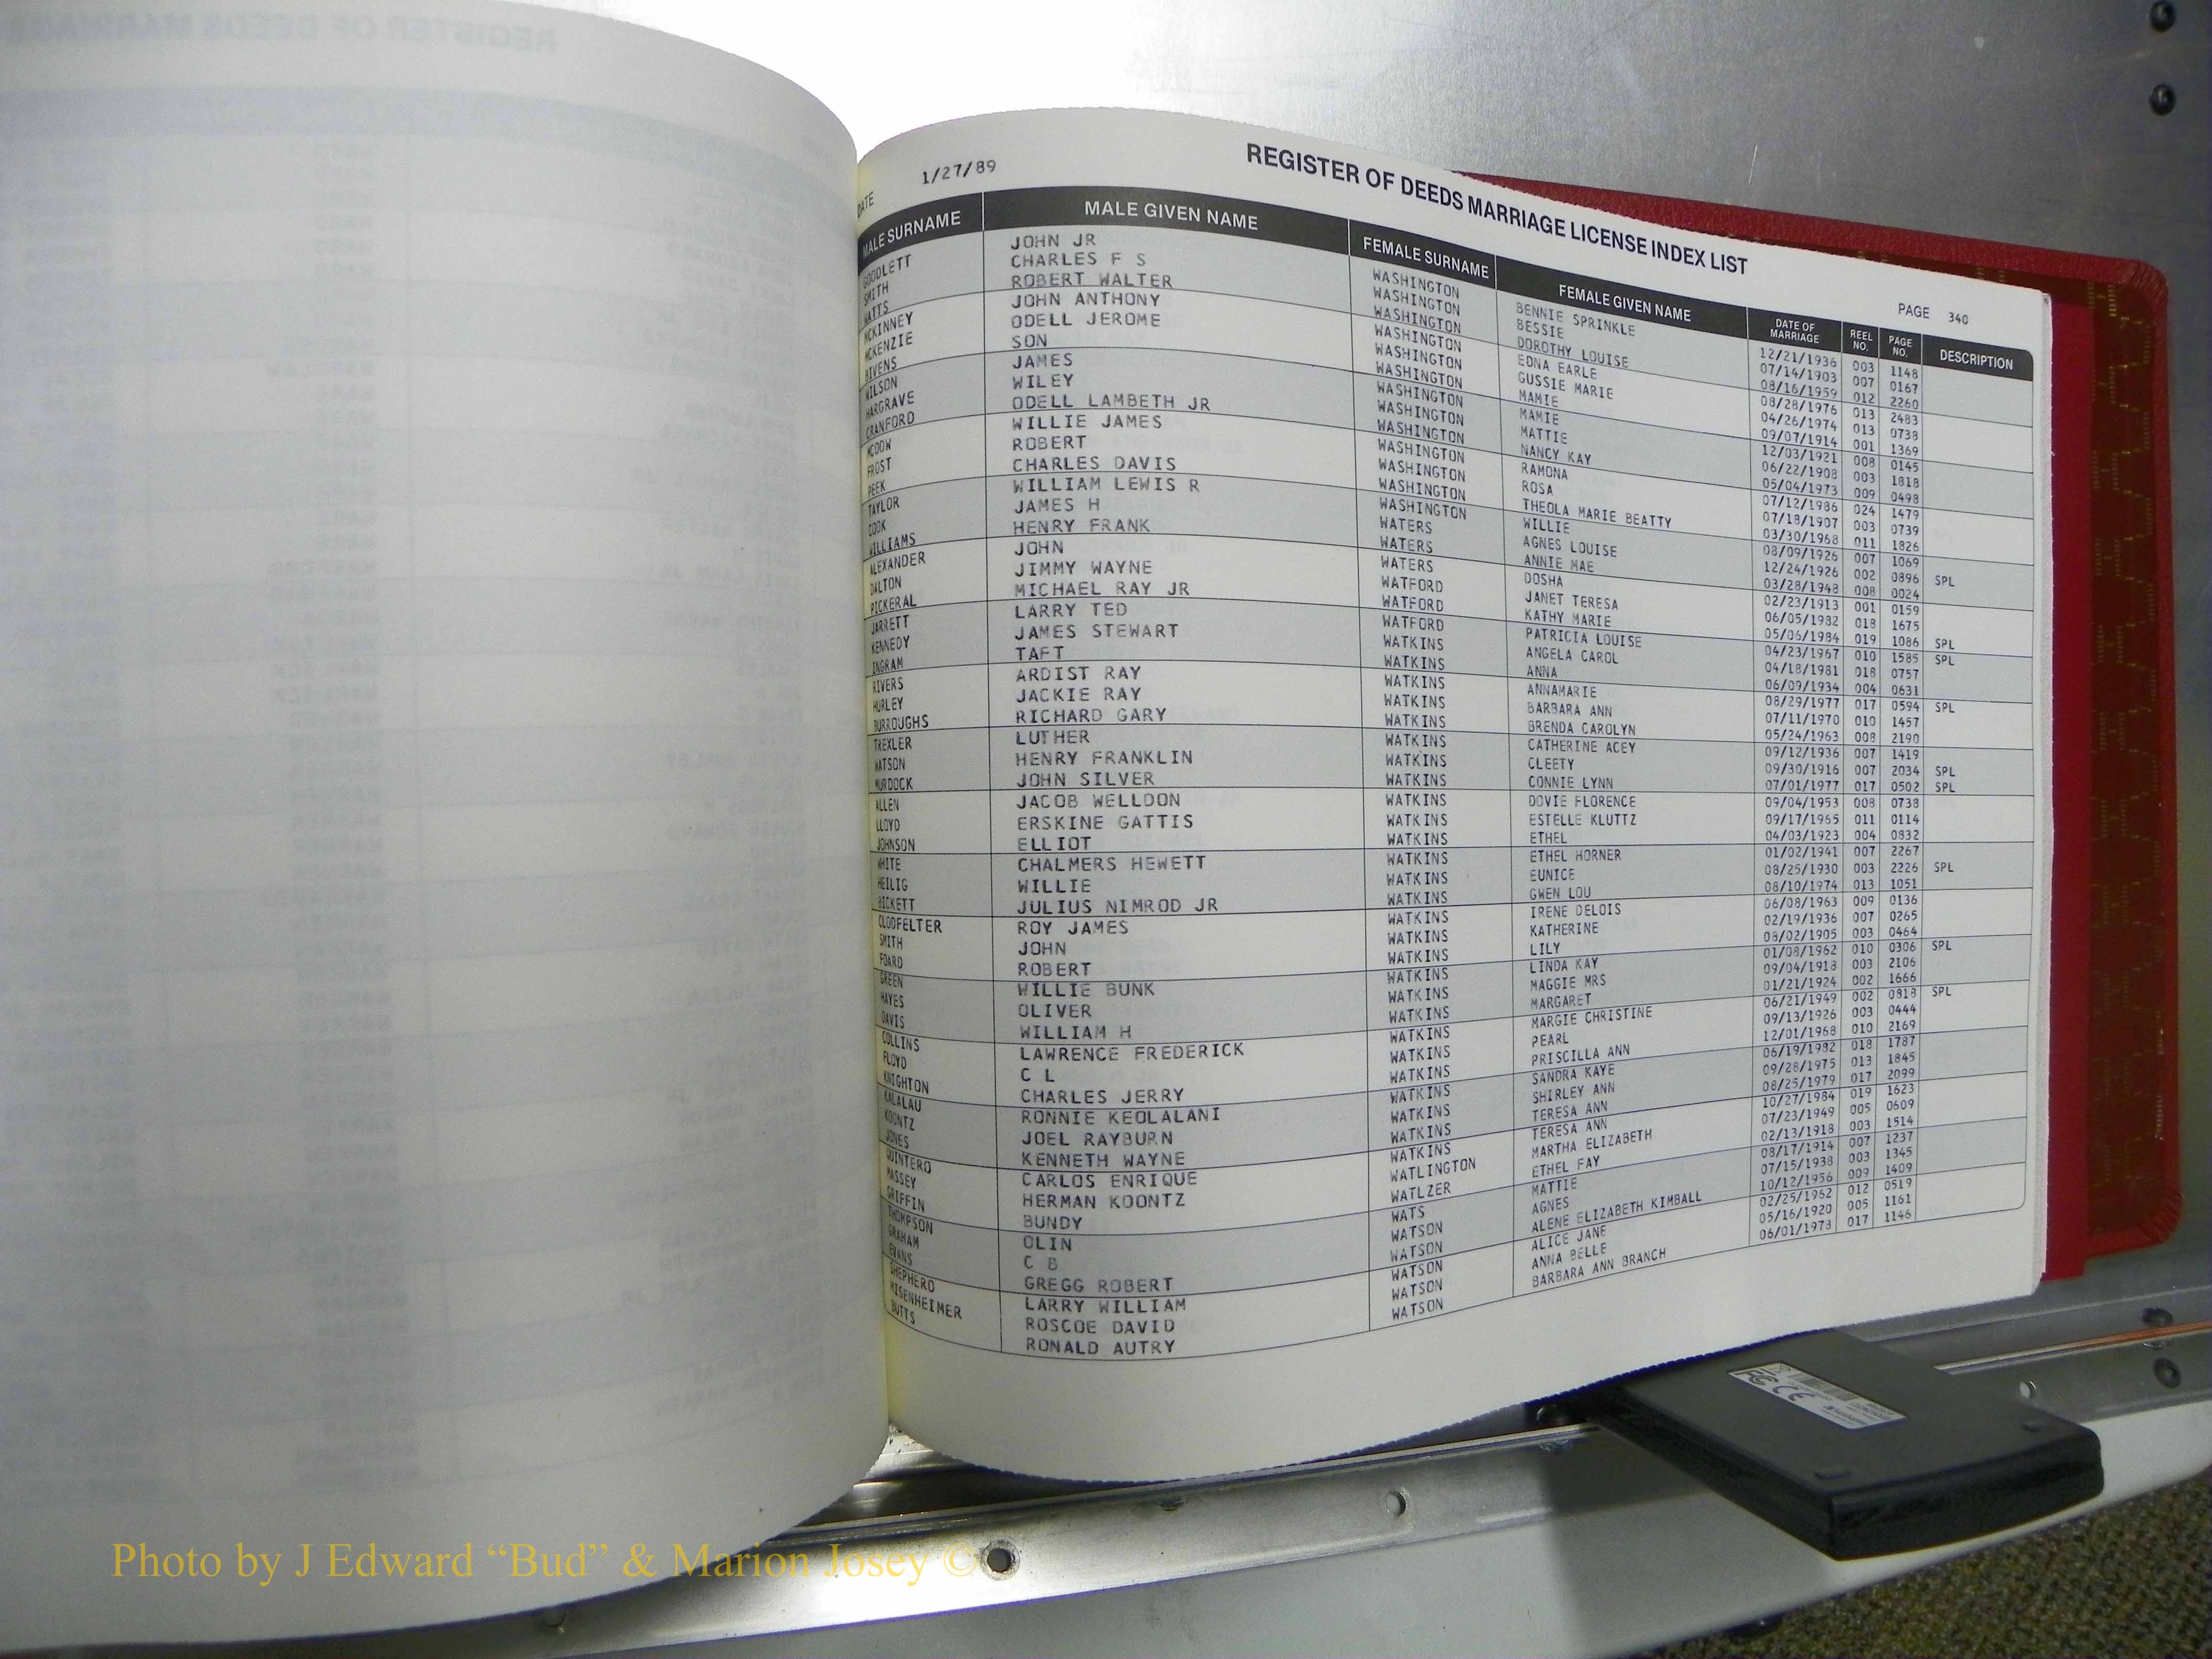 DATE 1/27/89 REGISTER OF DEEDS MARRIAGE LICENSE INDEX LIST PAGE 340
MALE SURNAME MALE GIVEN NAME FEMALE SURNAME FEMALE GIVEN NAME DATE OF MARRIAGE REEL NO. PAGE NO. DESCRIPTION
GOODLETT JOHN JR WASHINGTON BENNIE SPRINKLE 12/21/1936 003 1148
SMITH CHARLES F S WASHINGTON BESSIE 07/14/1903 007 0167
WATTS ROBERT WALTER WASHINGTON DOROTHY LOUISE 08/16/1959 012 2260
MCKINNEY JOHN ANTHONY WASHINGTON EDNA EARLE 08/28/1976 013 2483
MCKENZIE ODELL JEROME WASHINGTON GUSSIE MARIE 04/26/1974 013 0738
BIVENS SON WASHINGTON MAMIE 09/07/1914 001 1369
WILSON JAMES WASHINGTON MAMIE 12/03/1921 008 0145
HARGRAVE WILEY WASHINGTON MATTIE 06/22/1908 003 1818
CRANFORD ODELL LAMBETH JR WASHINGTON NANCY KAY 05/04/1973 009 0498
MCDOW WILLIE JAMES WASHINGTON RAMONA 07/12/1986 024 1479
FROST ROBERT WASHINGTON ROSA 07/18/1907 003 0739
PEEK CHARLES DAVIS WASHINGTON THEOLA MARIE BEATTY 03/30/1968 011 1826
TAYLOR WILLIAM LEWIS R WASHINGTON WILLIE 08/09/1926 007 1069
COOK JAMES H WATERS AGNES LOUISE 12/24/1926 002 0896 SPL
WILLIAMS HENRY FRANK WATERS ANNIE MAE 03/28/1948 008 0024
ALEXANDER JOHN WATERS DOSHA 02/23/1913 001 0159
DALTON JIMMY WAYNE WATFORD JANET TERESA 06/05/1982 018 1675
PICKERAL MICHAEL RAY JR WATFORD KATHY MARIE 05/06/1984 019 1086 SPL
JARRETT LARRY TED WATFORD PATRICIA LOUISE 04/23/1967 010 1585 SPL
KENNEDY JAMES STEWART WATKINS ANGELA CAROL 04/18/1981 018 0757
INGRAM TAFT WATKINS ANNA 06/09/1934 004 0631
RIVERS ARDIST RAY WATKINS ANNAMARIE 08/29/1977 017 0594 SPL
HURLEY JACKIE RAY WATKINS BARBARA ANN 07/11/1970 010 1457
BURROUGHS RICHARD GARY WATKINS BRENDA CAROLYN 05/24/1963 008 2190
TREXLER LUTHER WATKINS CATHERINE ACEY 09/12/1936 007 1419
WATSON HENRY FRANKLIN WATKINS CLEETY 09/30/1916 007 2034 SPL
MURDOCK JOHN SILVER WATKINS CONNIE LYNN 07/01/1977 017 0502 SPL
ALLEN JACOB WELLDON WATKINS DOVIE FLORENCE 09/04/1953 008 0738
LLOYD ERSKINE GATTIS WATKINS ESTELLE KLUTTZ 09/17/1965 011 0114
JOHNSON ELLIOT WATKINS ETHEL 04/03/1923 004 0832
WHITE CHALMERS HEWETT WATKINS ETHEL HORNER 01/02/1941 007 2267
HEILIG WILLIE WATKINS EUNICE 08/25/1930 003 2226 SPL
HICKETT JULIUS NIMROD JR WATKINS GWEN LOU 08/10/1974 013 1051
CLODFELTER ROY JAMES WATKINS IRENE DELOIS 06/08/1963 009 0136
SMITH JOHN WATKINS KATHERINE 02/19/1936 007 0265
FOARD ROBERT WATKINS LILY 08/02/1905 003 0464
GREEN WILLIE BUNK WATKINS LINDA KAY 01/08/1962 010 0306 SPL
HAYES OLIVER WATKINS MAGGIE MRS 09/04/1918 003 2106
DAVIS WILLIAM H WATKINS MARGARET 01/21/1924 002 1666
COLLINS LAWRENCE FREDERICK WATKINS MARGIE CHRISTINE 06/21/1949 002 0818 SPL
FLOYD C L WATKINS PEARL 09/13/1926 003 0444
KNIGHTON CHARLES JERRY WATKINS PRISCILLA ANN 12/01/1968 010 2169
KALALAU RONNIE KEOLALANI WATKINS SANDRA KAYE 06/19/1982 018 1787
KOONTZ JOEL RAYBURN WATKINS SHIRLEY ANN 09/28/1975 013 1845
JONES KENNETH WAYNE WATKINS TERESA ANN 08/25/1979 017 2099
QUINTERO CARLOS ENRIQUE WATKINS TERESA ANN 10/27/1984 019 1623
MASSEY HERMAN KOONTZ WATLINGTON MARTHA ELIZABETH 07/23/1949 005 0609
GRIFFIN BUNDY WATLZER ETHEL FAY 02/13/1918 003 1514
THOMPSON OLIN WATS MATTIE 08/17/1914 007 1237
GRAHAM C B WATSON AGNES 07/15/1938 003 1345
EVANS GREGG ROBERT WATSON ALENE ELIZABETH KIMBALL 10/12/1956 009 1409
SHEPHERD LARRY WILLIAM WATSON ALICE JANE 02/25/1962 012 0519
MISENHEIMER ROSCOE DAVID WATSON ANNA BELLE 05/16/1920 005 1161
BUTTS RONALD AUTRY WATSON BARBARA ANN BRANCH 06/01/1978 017 1146
Photo by J Edward “Bud” & Marion Josey ©